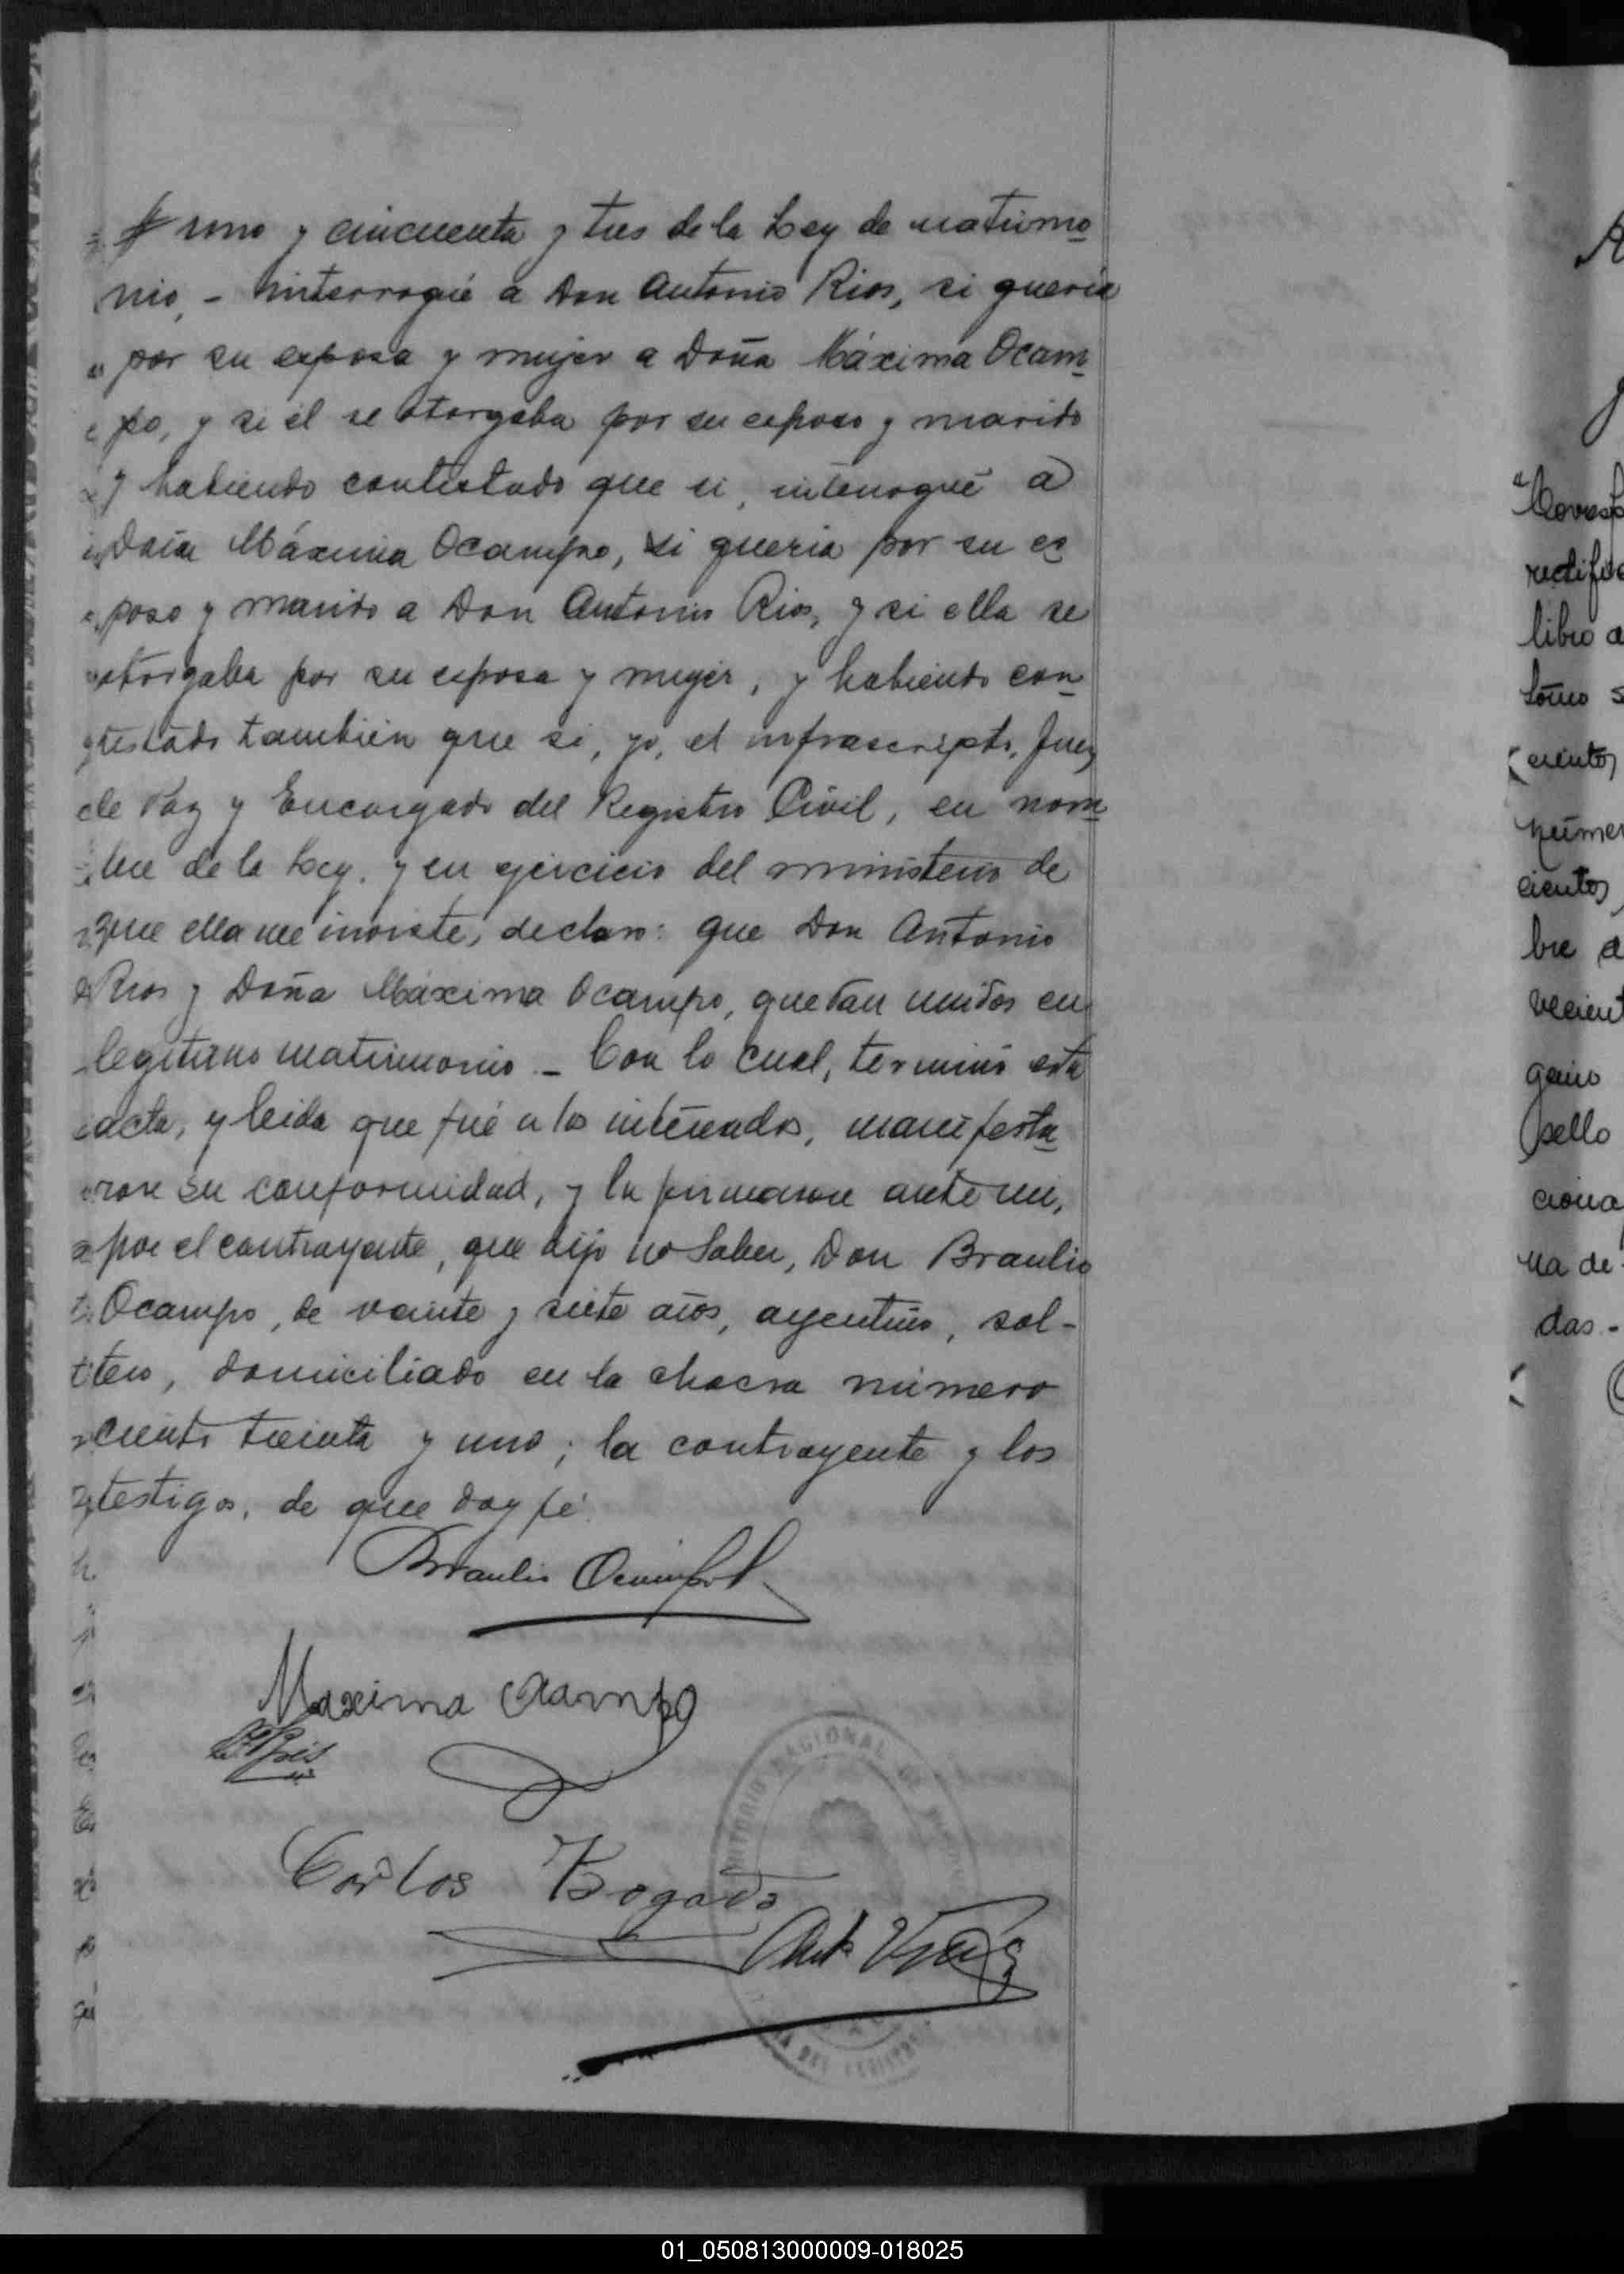 uno y cincuenta y tres de la Ley de matrimo
nio, - interrogué a Don Antonio Rios, si queria
por su esposa y mujer a Doña Máxima Ocam
po, y si él se otorgaba por su esposo y marido
y habiendo contestado que si, interrogué a
Doña Máxima Ocampo, si queria por su es
poso y marido a Don Antonio Rios, y si ella se
otorgaba por su esposa y mujer, y habiendo con
testado también que si, yo, el infrascripto, Juez
de Paz y Encargado del Registro Civil, en nom
bre de la Ley. y en ejercicio del ministerio de
que ella me inviste, declaro: que Don Antonio
Rios y Doña Máxima Ocampo, quedan unidos en
legitimo matrimonio. - Con lo cual, terminó esta
acta, y leida que fué a los interesados, manifesta
ron su conformidad, y la firmaron ante mi,
por el contrayente, que dijo no saber, Don Braulio
Ocampo, de veinte y siete años, argentino, sol-
tero, domiciliado en la chacra número
ciento treinta y uno; la contrayente y los
testigos, de que doy fé.
Braulio Ocampo
Maxima Ocampo
Carlos Bogado
rectifi
libro
cientos
númer
cientos
bre
sello
na de
das.-
01_050813000009-018025